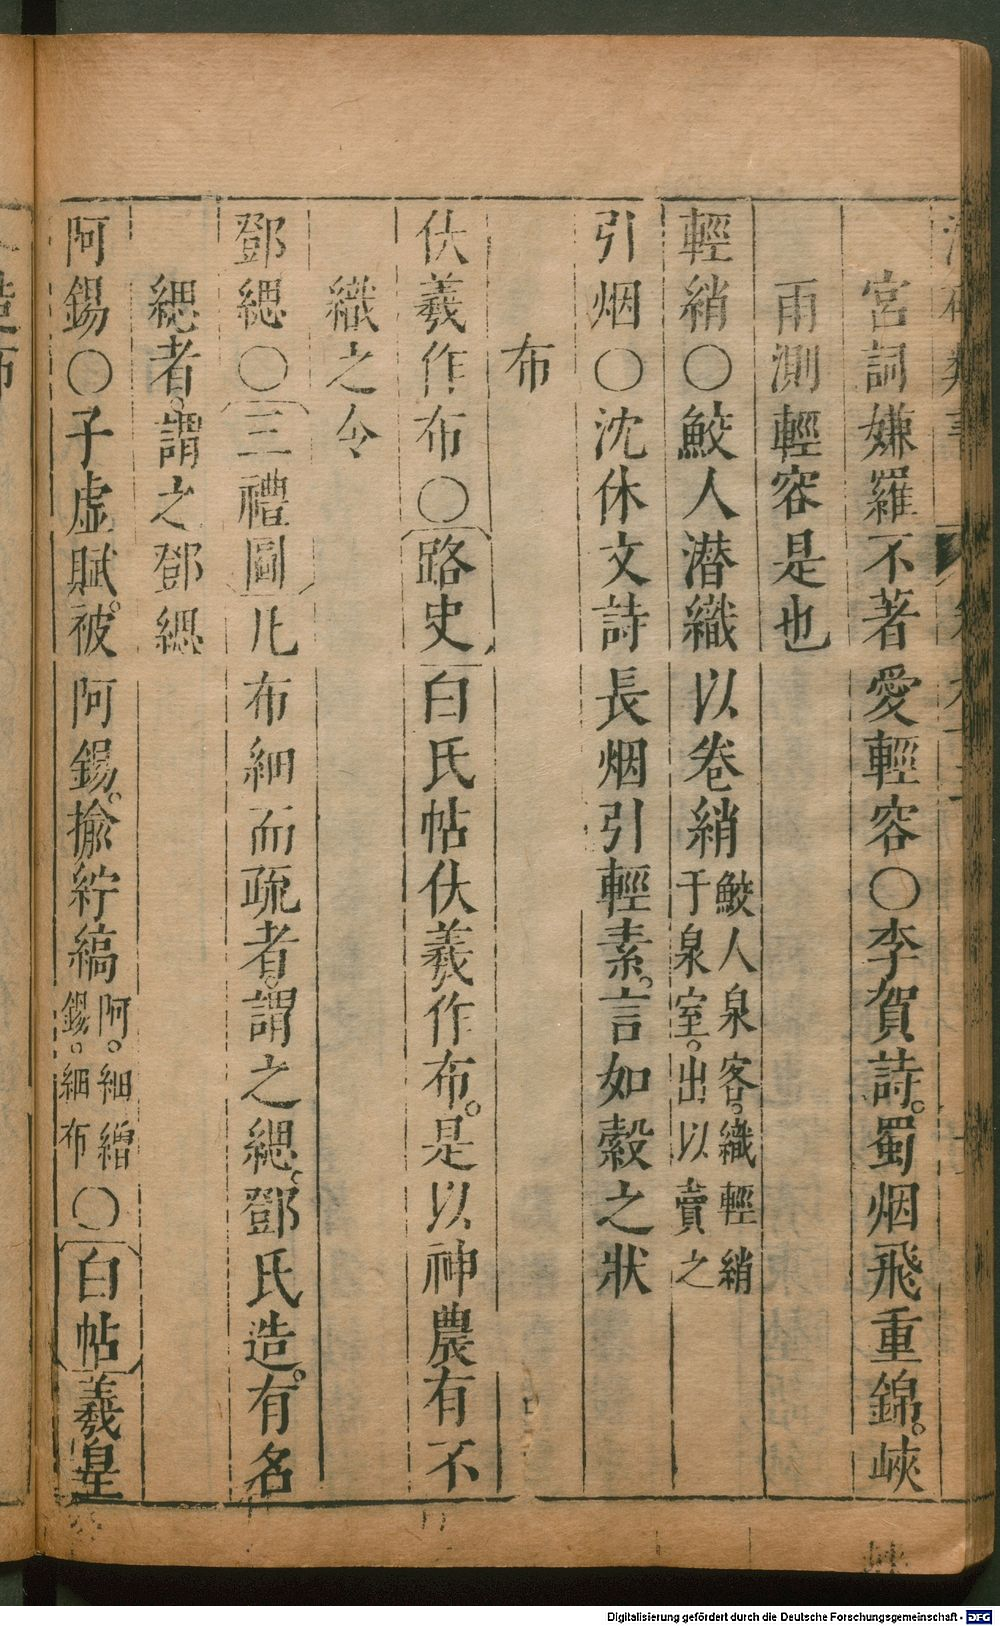 宮詞嫌羅不著愛輕容○李賀詩。蜀烟飛重錦。峽
雨測輕容是也
輕綃○鮫人潛織以卷綃鮫人泉客。織輕綃
于泉室。出以賣之
引烟○沈休文詩長烟引輕素。言如縠之狀
布
伏羲作布○路史白氏帖伏羲作布。是以神農有不
織之令
鄧緦○三禮圖凡布細而疏者。謂之緦。鄧氏造。有名
緦者。謂之鄧緦
阿錫○子虛賦。被阿錫。揄紵縞阿。細繒
錫。細布○白帖羲皇
造布
Digitalisierung gefördert durch die Deutsche Forschungsgemeinschaft - DFG